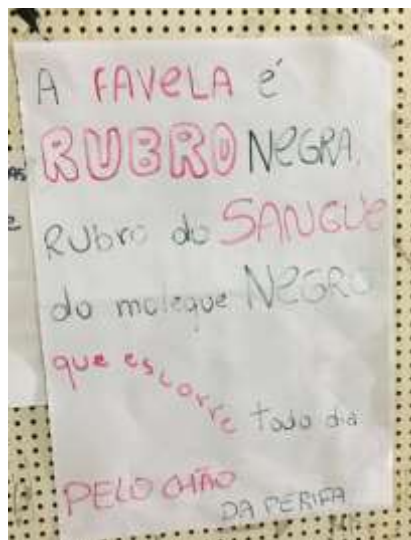 A FAVELA é
RUBRO NEGRA.
Rubro do SANGUE
do moleque NEGRO
que escorre todo dia
PELO CHÃO
DA PERIFA